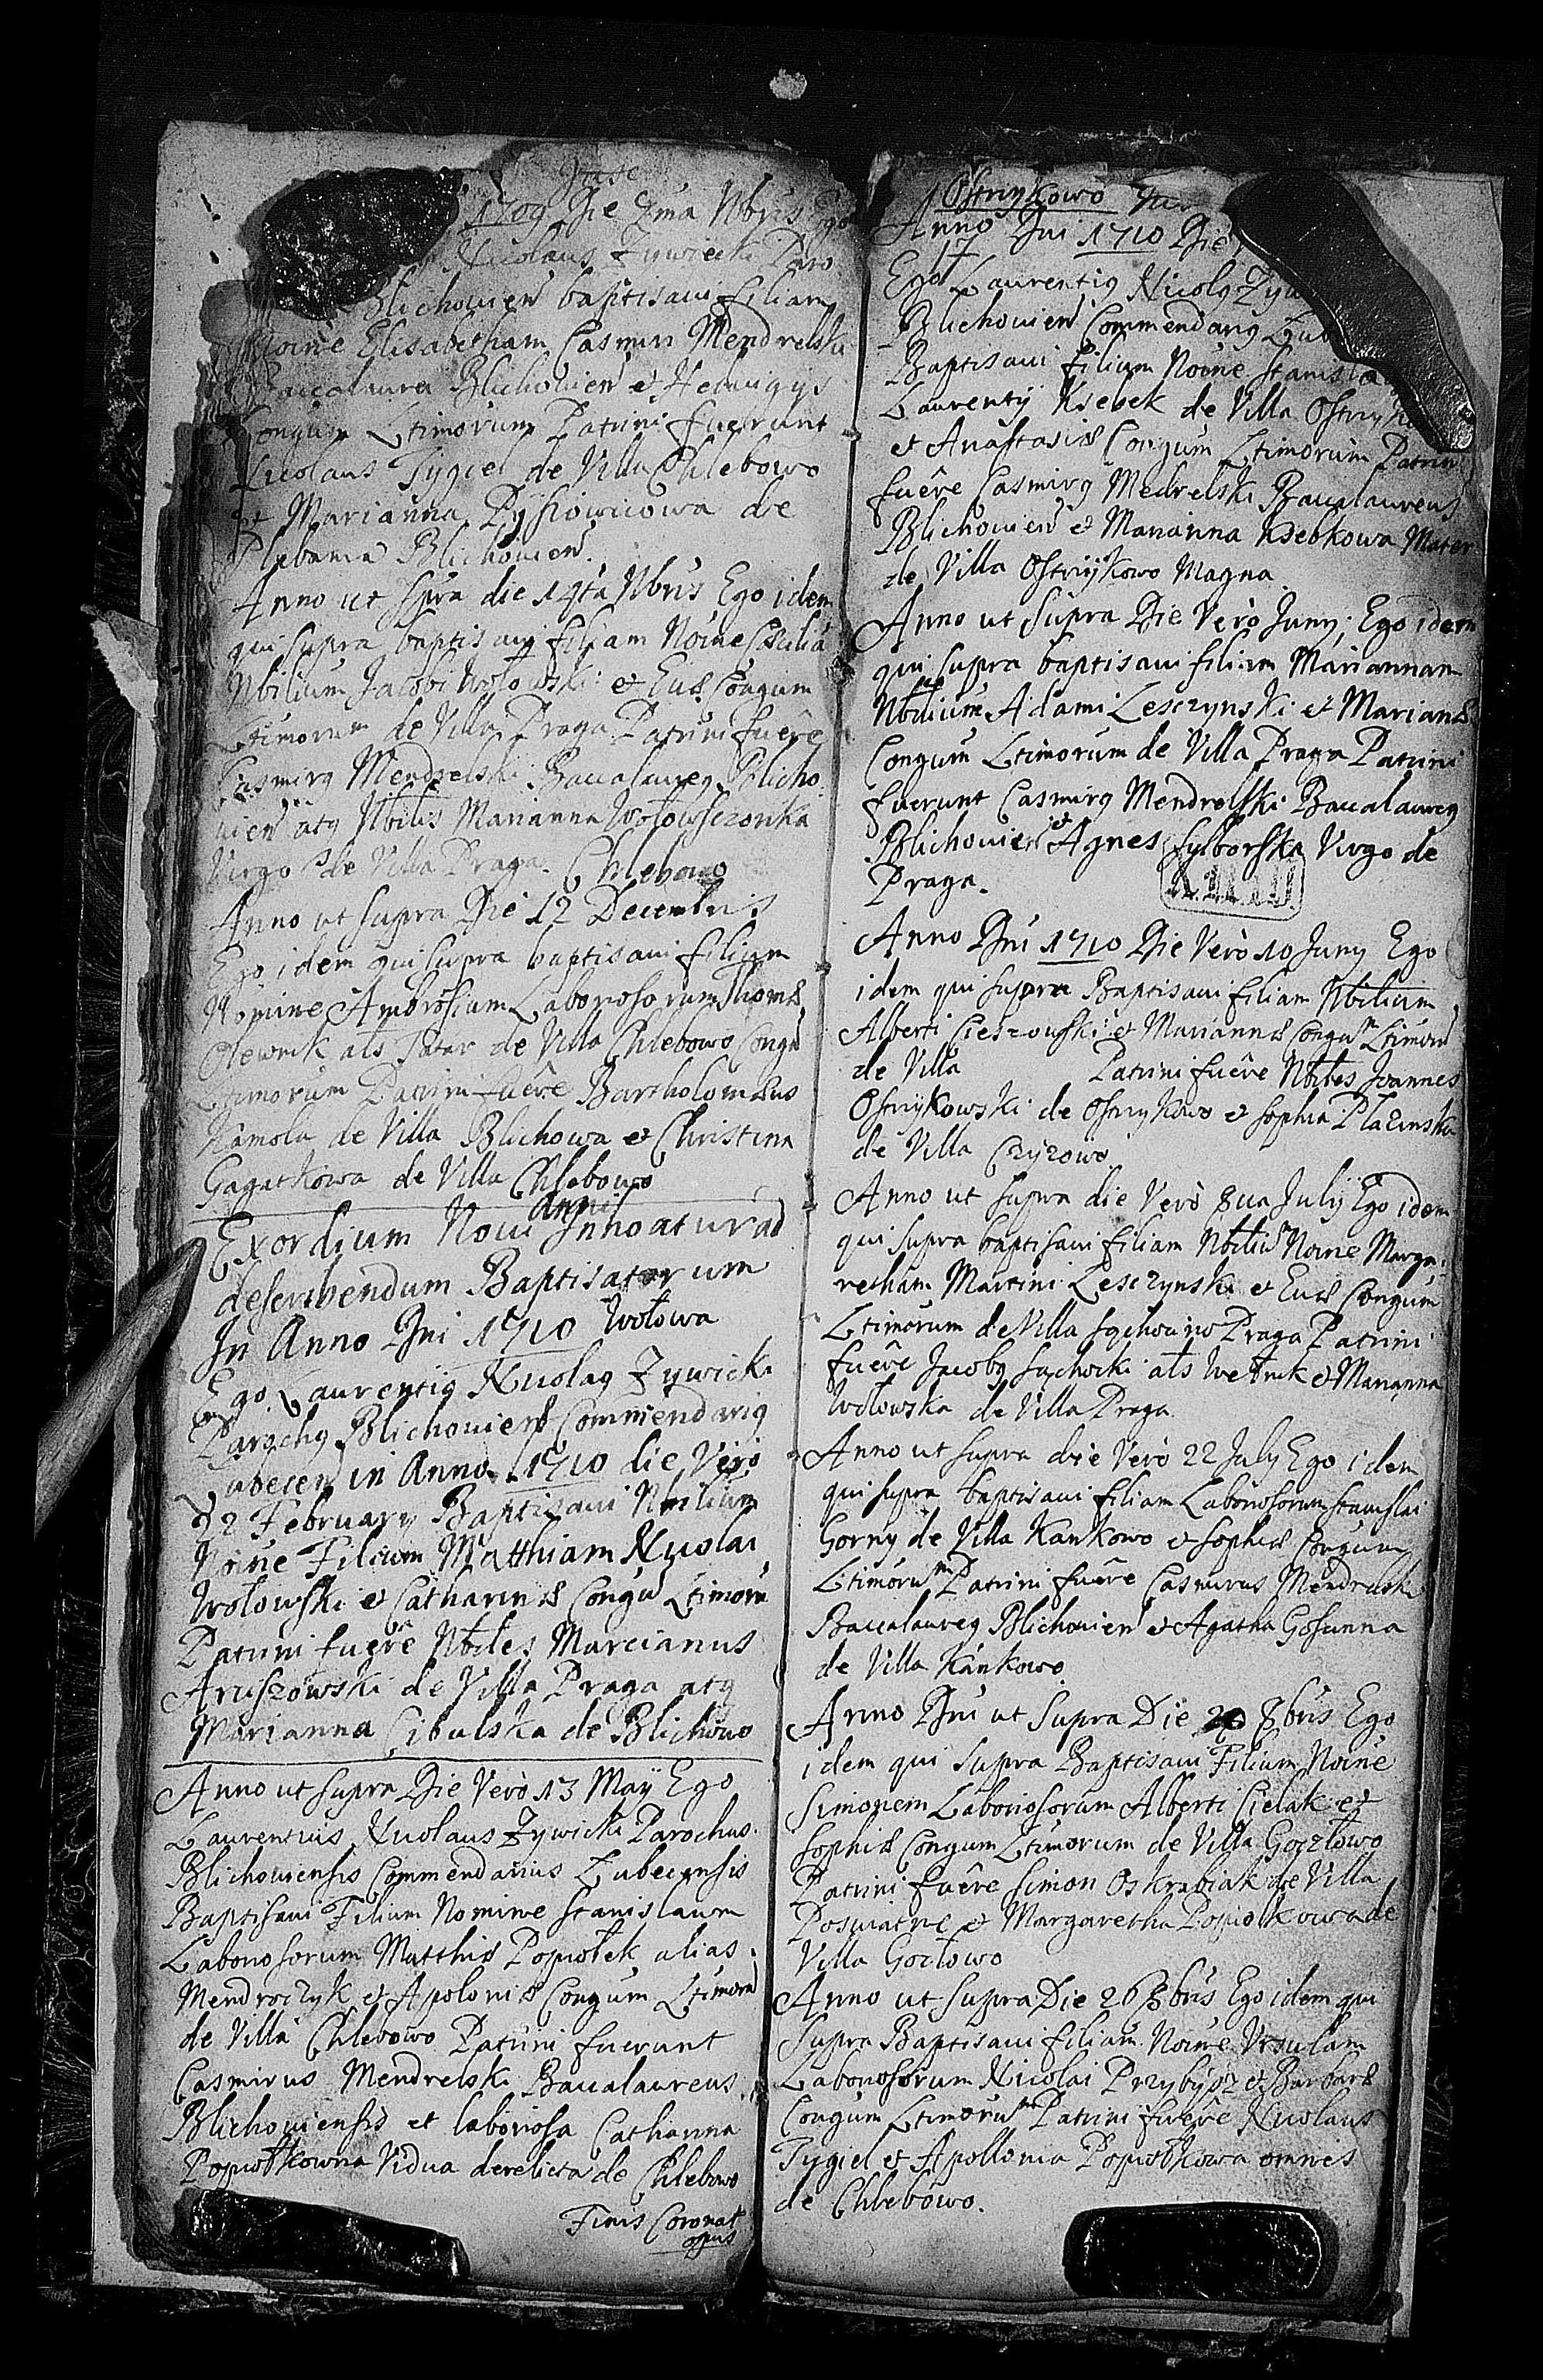 1709 Die 7ma Nbris Ego
Nicolaus Zywiecki Paro
Blichouien baptisaui filiam
Noine Elisabetham Casmiri Mendrelski
Baccalaurei Blichouien et Heduigis
Congum Ltimorum Patrini fuerunt
Nicolaus Tygiel de Villa Chlebowo
et Marianna de
Plebania Blichouien
Anno ut supra die 14ta Nbris Ego idem
qui supra baptisaui filiam Noine Cæcilia
Nbilium Jacobi Wołowski et Euæ Congum
Ltimorum de Villa Praga Patrini fuêre
Casmirq Mendrelski Baccalaureq Blicho
uien atq Nbilis Marianna Wołowsczonka
Virgo de Villa Praga. Chlebowo
Anno ut supra Die 12 Decembris
Ego idem qui supra baptisaui filium
Nomine Ambrosium Laboriosorum Thomæ
Olewnik als Tatar de Villa Chlebowo Congu
Ltimorum Patrini fuêre Bartholomæus
Kamola de Villa Blichowa et Christina
Gagatkowa de Villa Chlebowo
Exordium Noui Anni Innoatur ad
describendum Baptisatorum
In Anno Dni 1710 Wołowa
Ego Laurentiq Nicolaq Zywicki
Parochq Blichouien Commendariq
Lubecen in Anno 1710 die Verò
22 February Baptisaui Nbilium
Noine Filium Matthiam Nicolai
Wołowski et Catharinæ Congu Ltimoru
Patrini fuêre Nbiles Marcianus
Aruszowski de Villa Praga atq
Marianna Cibulska de Blichowo
Anno ut supra Die Verò 13 Maij Ego
Laurentius Nicolaus Zywicki Parochus
Blichouiensis Commendarius Lubecensis
Baptisaui Filium Nomine Stanislaum
Laboriosorum Matthiæ Popiołek alias
Mendrczyk et Apoloniæ Congum Ltimoru
de Villa Chlebowo Patrini fuerunt
Casmirus Mendrelski Baccalaureus
Blichouiensis et laboriosa Catharina
Popiołkowna Vidua derelicta de Chlebowo
Finis Coronat
opus
Ostrzykowo
Anno Dni 1710 Die
17
Ego Laurentiq Nicolq
Blichouien Commendariq
Baptisaui filium Noine
Laurentij Ksebek de Villa
et Anastasiæ Congum Ltimorum Patrini
fuêre Casmirq Medrelski Baccalaureus
Blichouien et Marianna Ksebkowa Mater
de Villa Ostrzykowo Magna
Anno ut supra Die Verò Juny Ego idem
qui supra baptisaui filiam Mariannam
Nbilium Adami Lesczynski et Marianæ
Congum Ltimorum de Villa Praga Patrini
fuerunt Casmirq Mendrelski Baccalaureq
Blichouien et Agnes Sylborska Virgo de
Praga.
Anno Dni 1710 Die Verò 10 Juny Ego
idem qui supra Baptisaui filiam Nbilium
Alberti Cieszowski et Mariannæ Congum Ltimoru
de Villa Patrini fuêre Nbiles Joannes
Ostrzykowski de Ostrzykowo et Sophia Plazinska
de Villa Czyzowo
Anno ut supra die Verò 8ua Julij Ego idem
qui supra baptisaui filiam Nbiliu Noine Marga
retham Martini Lesczynski et Euæ Congum
Ltimorum de Villa Praga Patrini
fuêre Jacobq Sychocki als et Marianna
Wołowska de Villa Praga
Anno ut supra die Verò 22 July Ego idem
qui supra baptisaui filiam Laboriosorum Stanislai
Gorny de Villa Kankowo et Sophiæ Congum
Ltimorum Patrini fuêre Casmirus Mendrelski
Baccalaureq Blichouien et Agatha
de Villa Kankowo
Anno Dni ut supra Die 8bris Ego
idem qui supra Baptisaui Filium Noine
Simonem Laboriosorum Alberti Cielak et
Sophiæ Congum Ltimorum de Villa Goczłowo
Patrini fuêre Simon Oskrabiak de Villa
et Margaretha Popiołkowa de
Villa Goczłowo
Anno ut supra Die 26 8bris Ego idem qui
supra Baptisaui filiam Noine Vrsulam
Laboriosorum Nicolai Przybysz et Barbaræ
Congum Ltimorum Patrini fuêre Nicolaus
Tygiel et Apollonia Popiołkowa omnes
de Chlebowo.